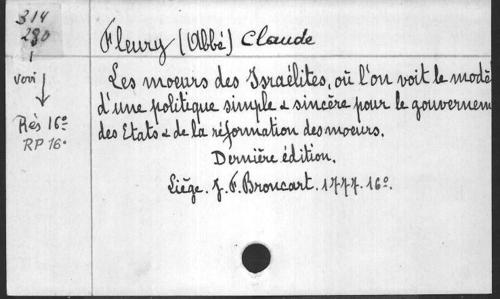 314
280
1
voir
Rés 16º
RP 16º
Fleury (Abbé) Claude
Les moeurs des Israélites, où l'on voit le modè
d'une politique simple & sincère pour le gouvernem
des Etats & de la réformation des moeurs.
Dernière édition.
Liège. J. F. Broncart. 1777. 16º.